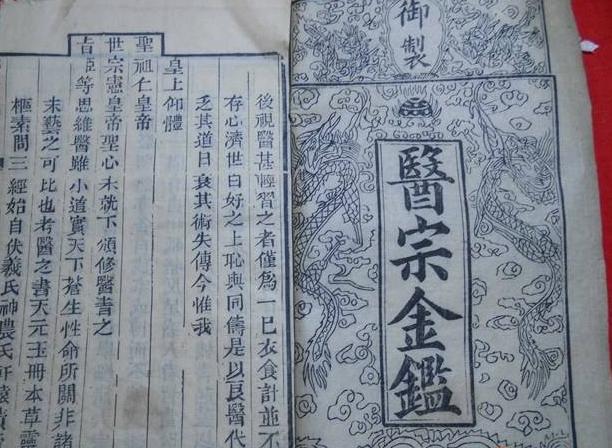 御製
醫宗金鑑
後視醫甚輕習之者僅爲一已衣食計並不
存心濟世自好之士恥與同儔是以良醫代
乏其道日衰其術失傳今惟我
皇上仰體
聖祖仁皇帝
世宗憲皇帝聖心未就下頒修醫書之
旨臣等思維醫雖小道實天下蒼生性命所關非諸
末藝之可比也考醫之書天元玉冊本草靈
樞素問三經始自伏羲氏神農氏軒轅黃